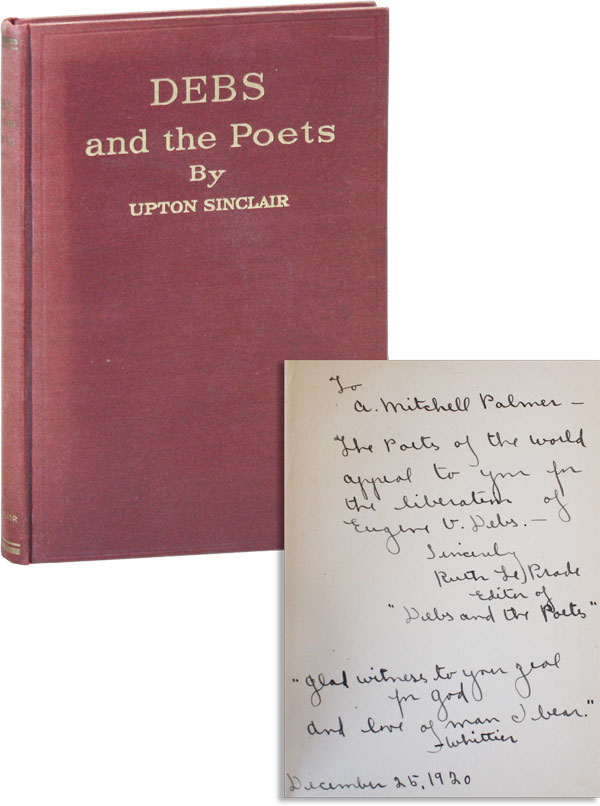 DEBS
and the Poets
By
UPTON SINCLAIR
To
A. Mitchell Palmer —
The Poets of the world
appeal to you for
the liberation of
Eugene V. Debs. —
Sincerely
Ruth Le Prade
Editor of
"Debs and the Poets"
"glad witness to your zeal
for god
and love of man I bear."
—Whittier
December 25, 1920